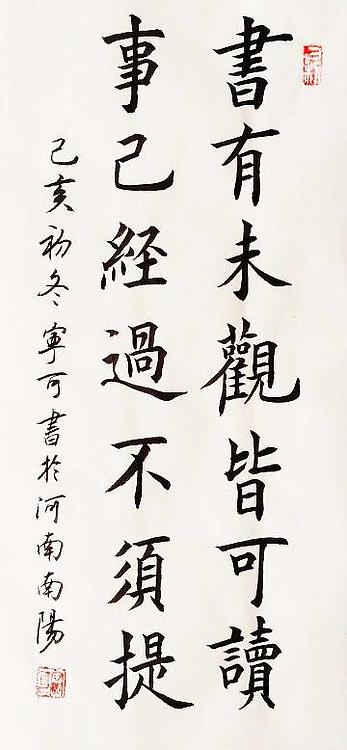 書有未觀皆可讀
事已経過不須提
己亥初冬寧可書於河南南陽